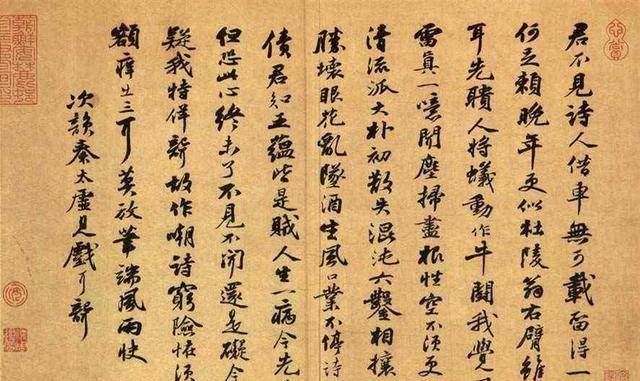 君不見詩人借車無可載留得一
何足賴晚年更似杜陵翁右臂雖
耳先聵人將蟻動作牛鬭我覺
雷真一噫聞塵掃盡根性空不須更
清流派大朴初散失混沌六鑿相攘
勝壞眼花亂墜酒生風口業不停詩
債君知五蘊皆是賊人生一病今先
但恐此心終未了不見不聞還是礙今
疑我特佯聾故作嘲詩窮險怪須
額癢出三耳莫放筆端風雨快
次韻秦太虛見戲耳聾